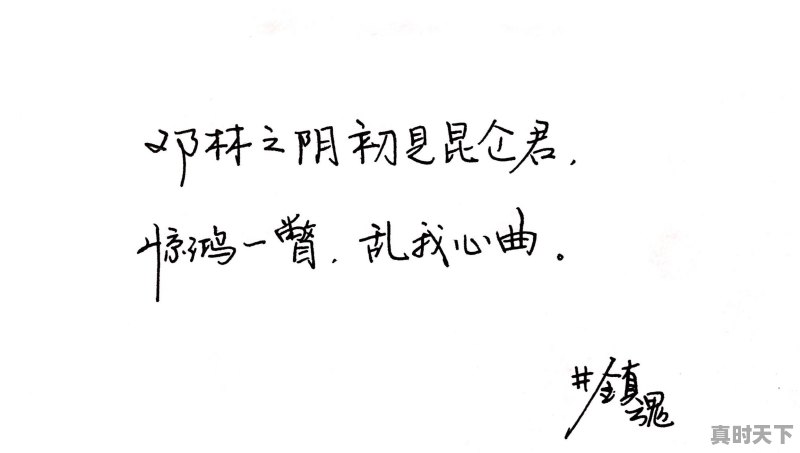 邓林之阴初见昆仑君，
惊鸿一瞥，乱我心曲。
#镇魂
真时天下